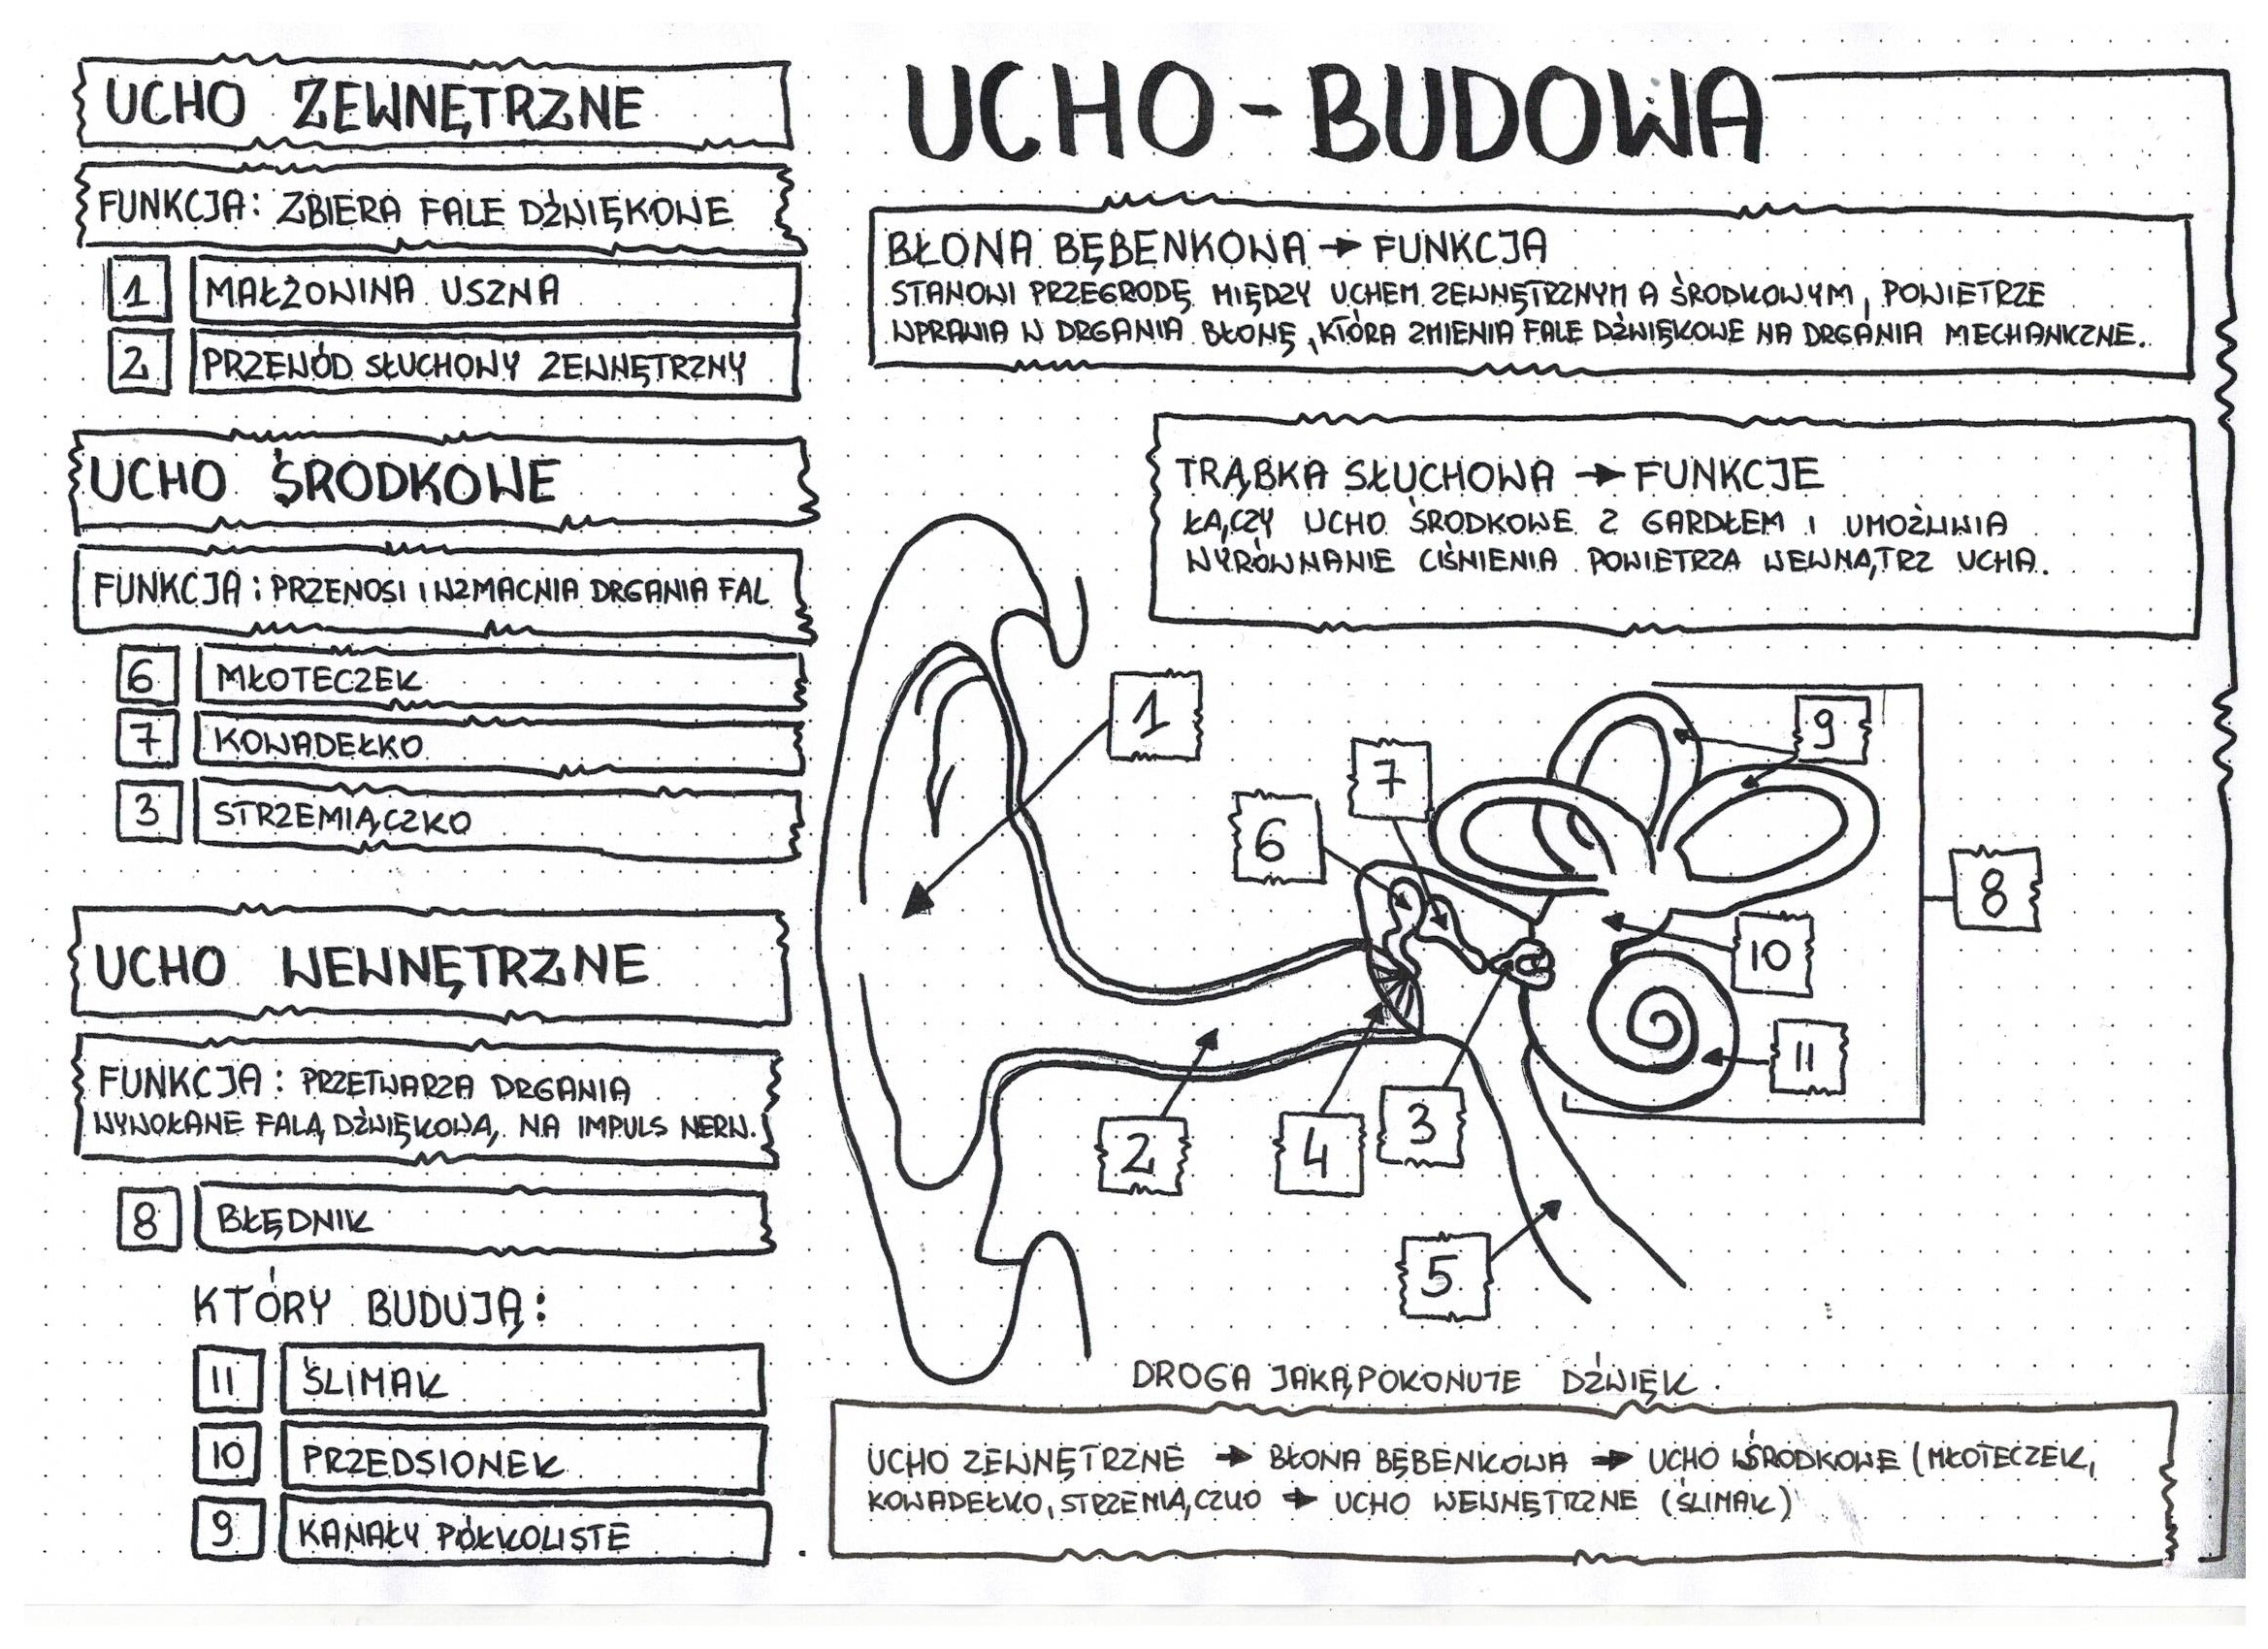 UCHO ZEWNĘTRZNE
FUNKCJA: ZBIERA FALE DŹWIĘKOWE
1 MAŁŻOWINA USZNA
2 PRZEWÓD SŁUCHOWY ZEWNĘTRZNY
UCHO ŚRODKOWE
FUNKCJA: PRZENOSI I WZMACNIA DRGANIA FAL
6 MŁOTECZEK
7 KOWADEŁKO
3 STRZEMIĄCZKO
UCHO WEWNĘTRZNE
FUNKCJA: PRZETWARZA DRGANIA
WYWOŁANE FALĄ DŹWIĘKOWĄ, NA IMPULS NERW.
8 BŁĘDNIK
KTÓRY BUDUJĄ:
11 ŚLIMAK
10 PRZEDSIONEK
9 KANAŁY PÓŁKOLISTE
UCHO - BUDOWA
BŁONA BĘBENKOWA → FUNKCJA
STANOWI PRZEGRODĘ MIĘDZY UCHEM ZEWNĘTRZNYM A ŚRODKOWYM, POWIETRZE
WPRAWIA W DRGANIA BŁONĘ, KTÓRA ZMIENIA FALE DŹWIĘKOWE NA DRGANIA MECHANKZNE.
TRĄBKA SŁUCHOWA → FUNKCJE
ŁĄCZY UCHO ŚRODKOWE Z GARDŁEM I UMOŻLIWIA
WYRÓWNANIE CIŚNIENIA POWIETRZA WEWNĄTRZ UCHA.
1
9
7
6
8
10
11
3
2
4
5
DROGA JAKĄ POKONUJE DŹWIĘK.
UCHO ZEWNĘTRZNE → BŁONA BĘBENKOWA → UCHO ŚRODKOWE (MŁOTECZEK,
KOWADEŁKO, STRZEMIĄCZKO → UCHO WEWNĘTRZNE (ŚLIMAK)